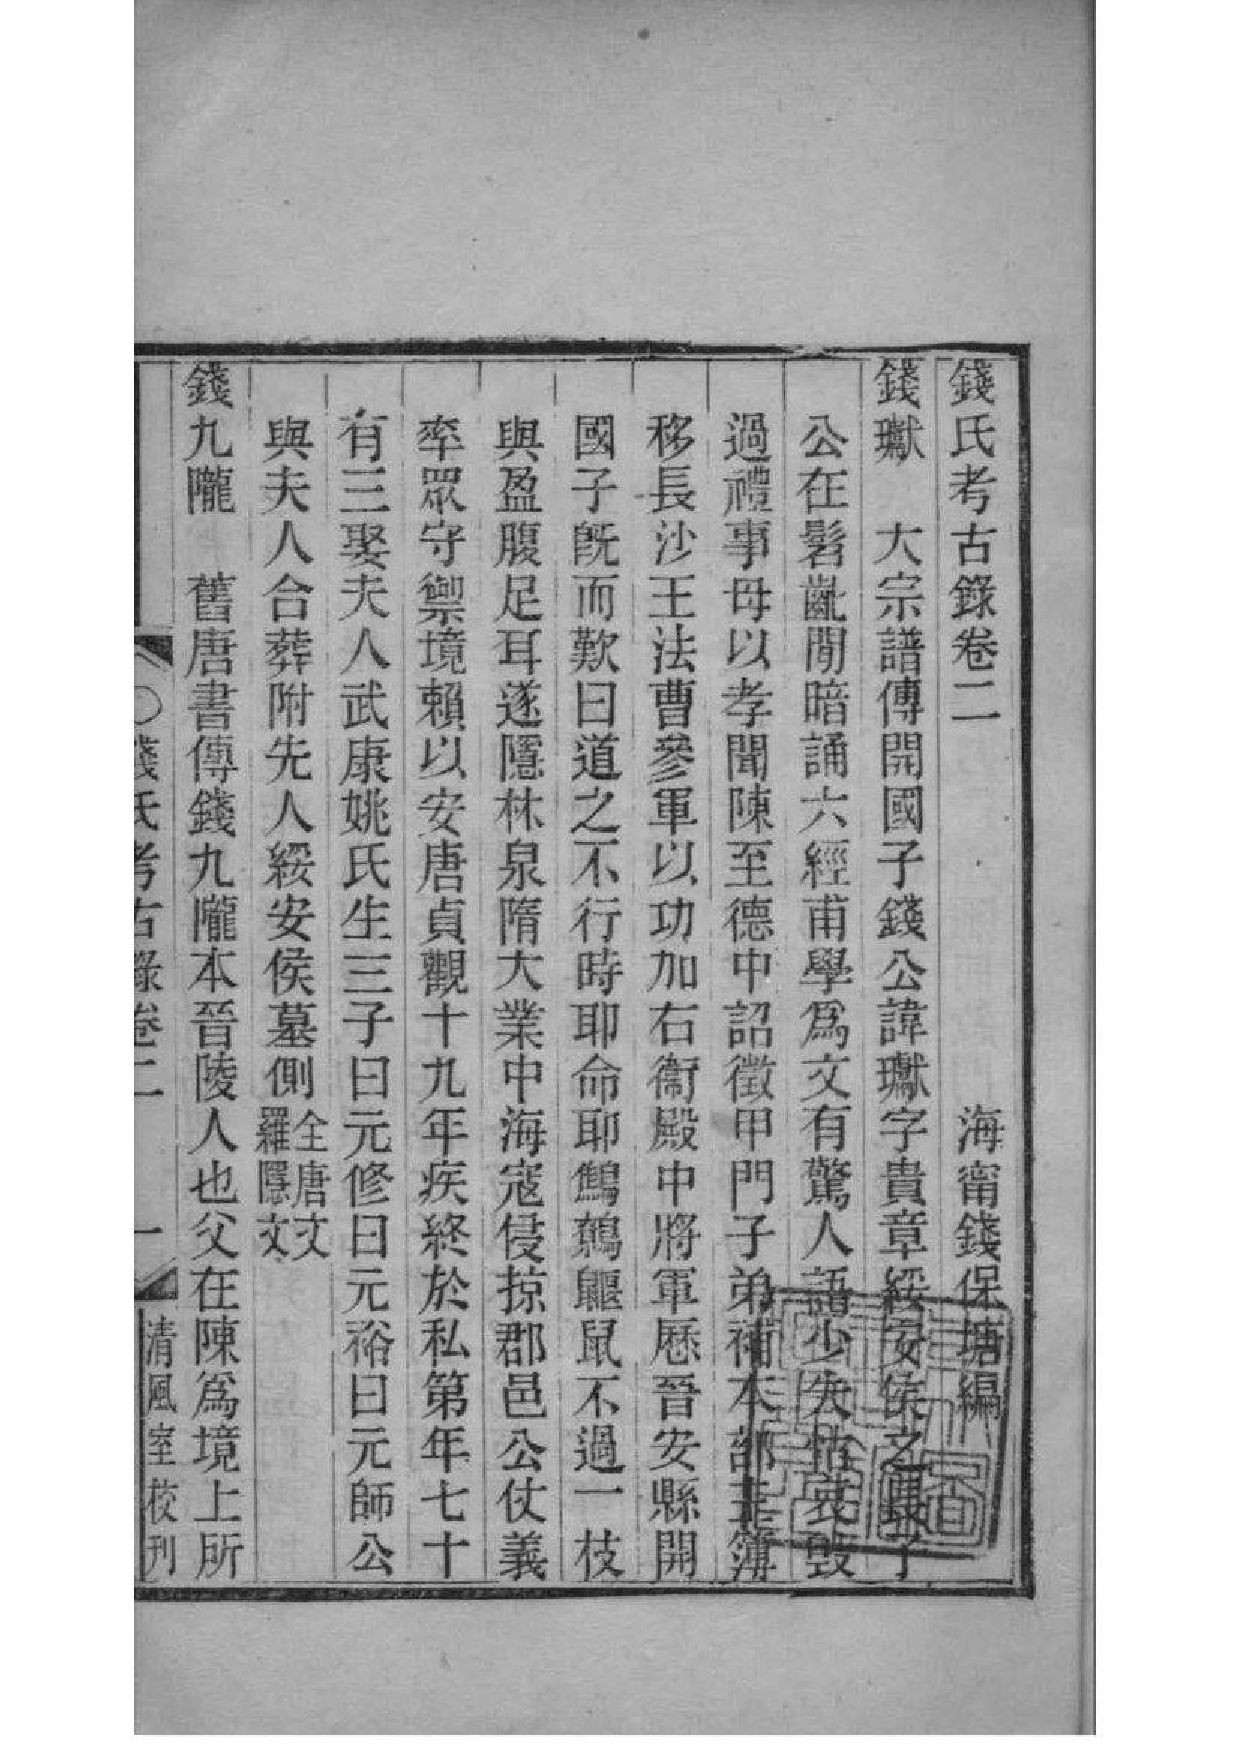 錢氏考古錄卷二
海甯錢保塘編
錢巘　大宗譜傳開國子錢公諱巘字貴章綏安侯之長子
公在髫齔閒暗誦六經甫學爲文有驚人語少失怙哀毁
過禮事母以孝聞陳至德中詔徵甲門子弟補本部主簿
移長沙王法曹參軍以功加右衞殿中將軍厯晉安縣開
國子旣而歎曰道之不行時耶命耶鷦鷯鼴鼠不過一枝
與盈腹足耳遂隱林泉隋大業中海寇侵掠郡邑公仗義
率眾守禦境賴以安唐貞觀十九年疾終於私第年七十
有三娶夫人武康姚氏生三子曰元修曰元裕曰元師公
與夫人合葬附先人綏安侯墓側全唐文
羅隱文
錢九隴　舊唐書傳錢九隴本晉陵人也父在陳爲境上所
錢氏考古錄卷二　一　清風室校刊